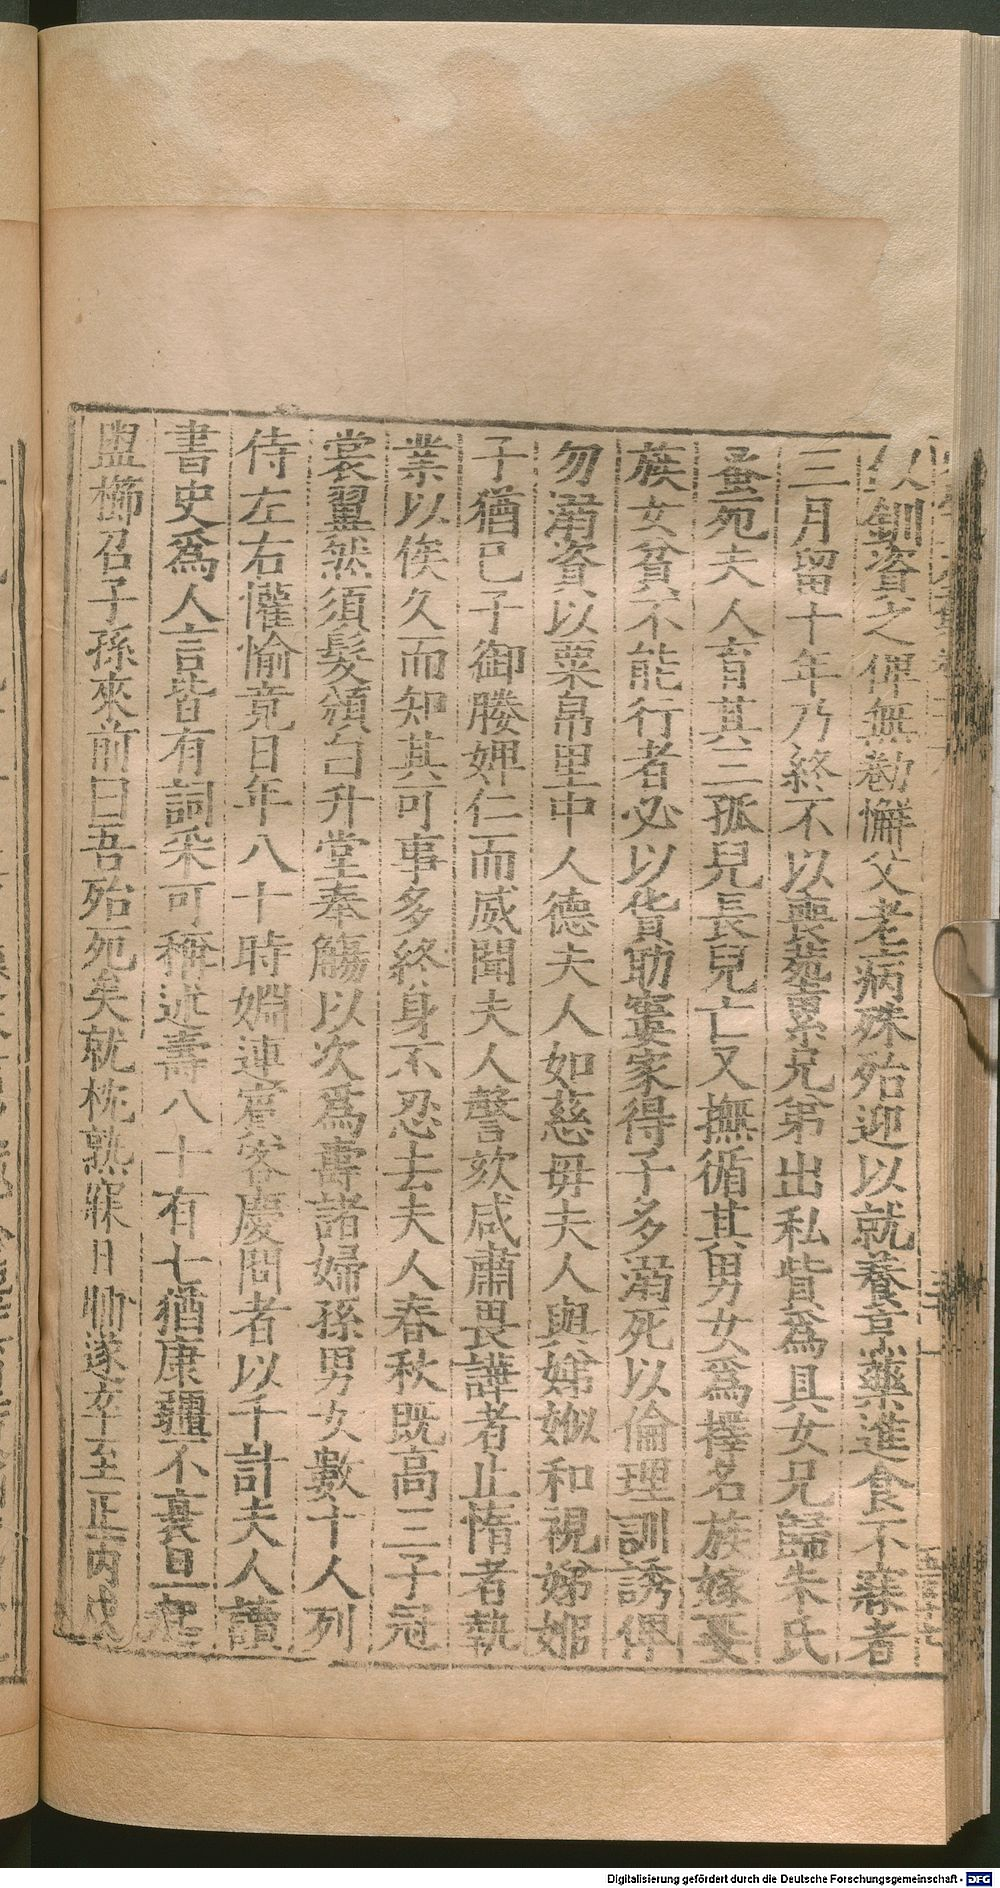 釧資之俾無勌懈父老病殊殆迎以就養烹藥進食不寐者
三月留十年乃終不以喪葬累兄弟出私貲為具女兄歸朱氏
蚤死夫人育其三孤兒長兒亡又撫循其男女爲擇名族嫁娶
族女貧不能行者必以貲助窶家得子多溺死以倫理訓誘俾
勿溺資以粟帛里中人德夫人如慈母夫人與娣姒和視娣
子猶已子御媵婢仁而威聞夫人謦欬咸肅畏譁者止惰者執
業以俟久而知其可事多終身不忍去夫人春秋既高三子冠
裳翼然須髮頒白升堂奉觴以次爲壽諸婦孫男女數十人列
侍左右懽愉竟日年八十時婣連賓客慶問者以千計夫人讀
書史爲人言皆有詞采可稱述壽八十有七猶康彊不衰旦起
盥櫛召子孫來前曰吾殆死矣就枕熟寐日晡遂卒至正丙戌
Digitalisierung gefördert durch die Deutsche Forschungsgemeinschaft - DFG